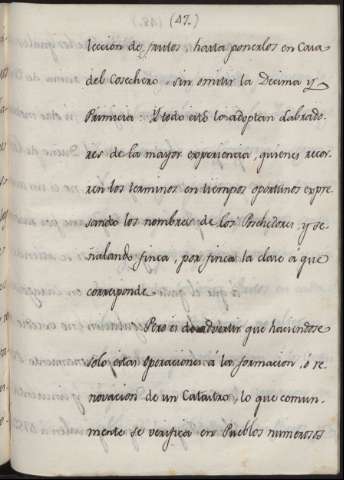 (47.)
leccion de frutos, hasta ponerlos en Casa
del Cosechero, sin omitir la Decima y
Primicia: Y todo esto lo adoptan Labrado-
res de la mayor experiencia, quienes recor-
ren los terminos en tiempos oportunos expre-
sando los nombres de los Poseedores, y se-
ñalando finca, por finca la clave a que
corresponde.
Pero es de advertir que haciendose
solo estas operaciones á la formacion, ó re-
novacion de un Catastro, lo que comun-
mente se verifica en Pueblos numerosos